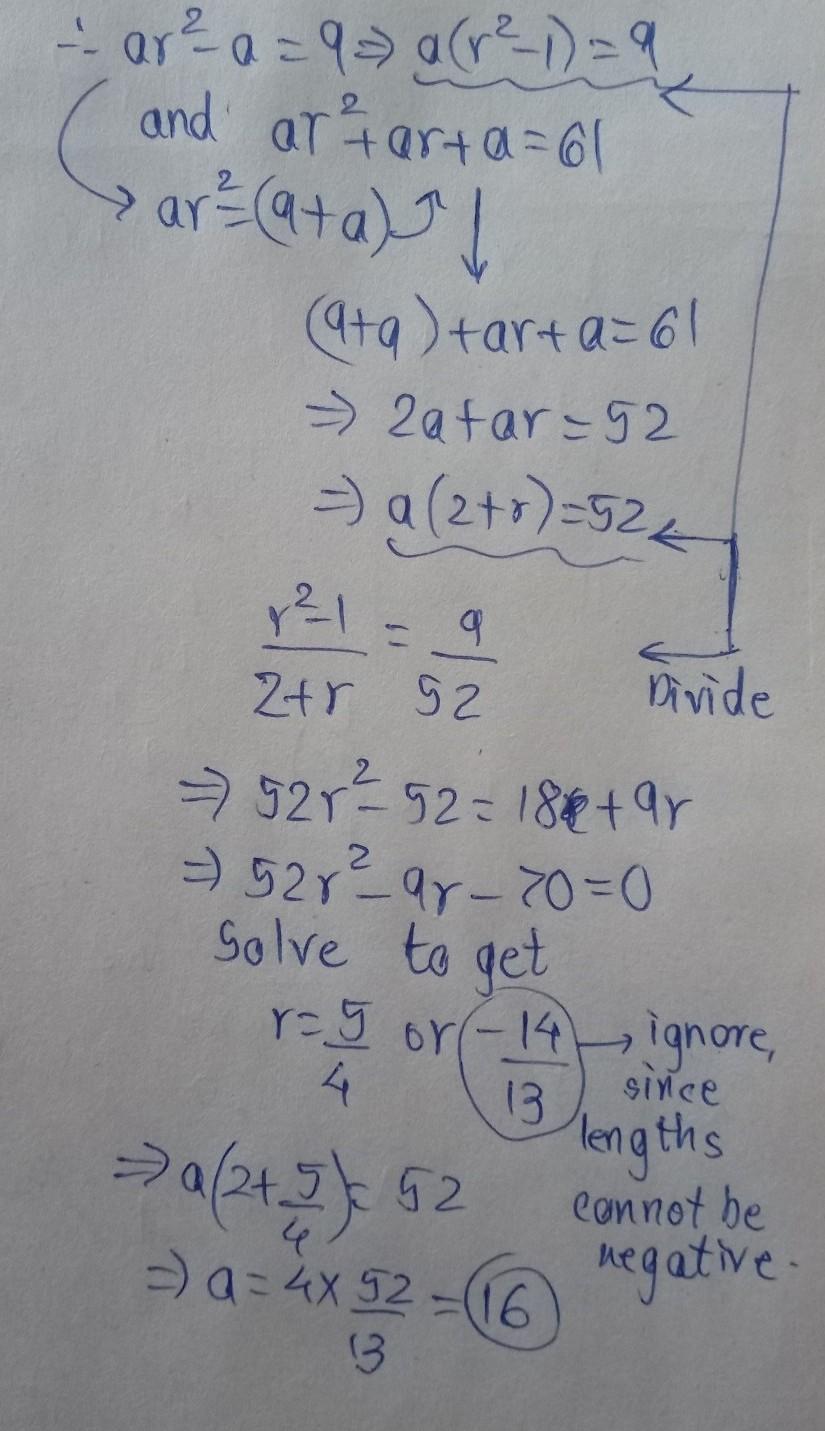 ∴ ar²-a=9⇒ a(r²-1)=9
and ar²+ar+a=61
→ ar²=(9+a)
(9+a)+ar+a=61
⇒ 2a+ar=52
⇒ a(2+r)=52
(r²-1)/(2+r) = 9/52
Divide
⇒ 52r²-52=18+9r
⇒ 52r²-9r-70=0
Solve to get
r=5/4 or -14/13 → ignore,
since
lengths
cannot be
negative.
⇒ a(2+5/4)=52
⇒ a=4×52/13=16